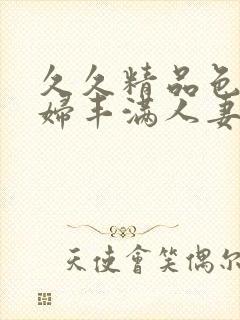 久久精品色
婦丰满人妻
天使會笑偶尔